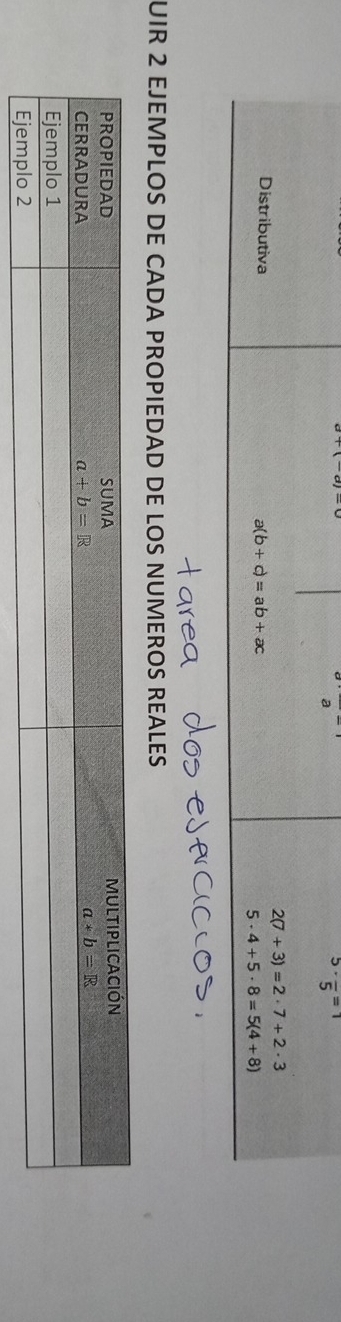 a + (– a) = 0
5 · 1/5 = 1
Distributiva
a(b + c) = ab + ac
2(7 + 3) = 2 · 7 + 2 · 3
5 · 4 + 5 · 8 = 5(4 + 8)
tarea dos ejercicios.
UIR 2 EJEMPLOS DE CADA PROPIEDAD DE LOS NUMEROS REALES
PROPIEDAD CERRADURA
SUMA
a + b = ℝ
MULTIPLICACIÓN
a * b = ℝ
Ejemplo 1
Ejemplo 2